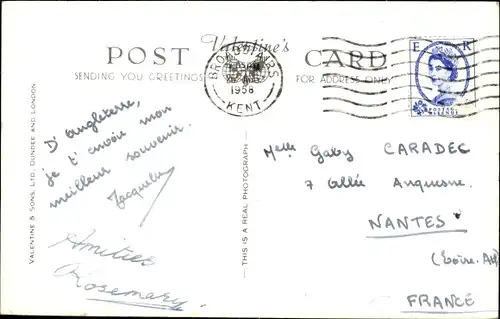 POST Valentine's CARD
SENDING YOU GREETINGS
FOR ADDRESS ONLY
BROADSTAIRS
1958
KENT
E R
POSTAGE REVENUE
VALENTINE & SONS, LTD., DUNDEE AND LONDON
THIS IS A REAL PHOTOGRAPH
D'Angleterre,
je t'envoie mon
meilleur souvenir.
Jacqueline
Amitiés
Rosemary
Melle Gaby CARADEC
7 Allée Duquesne.
NANTES
(Loire. Atl)
FRANCE